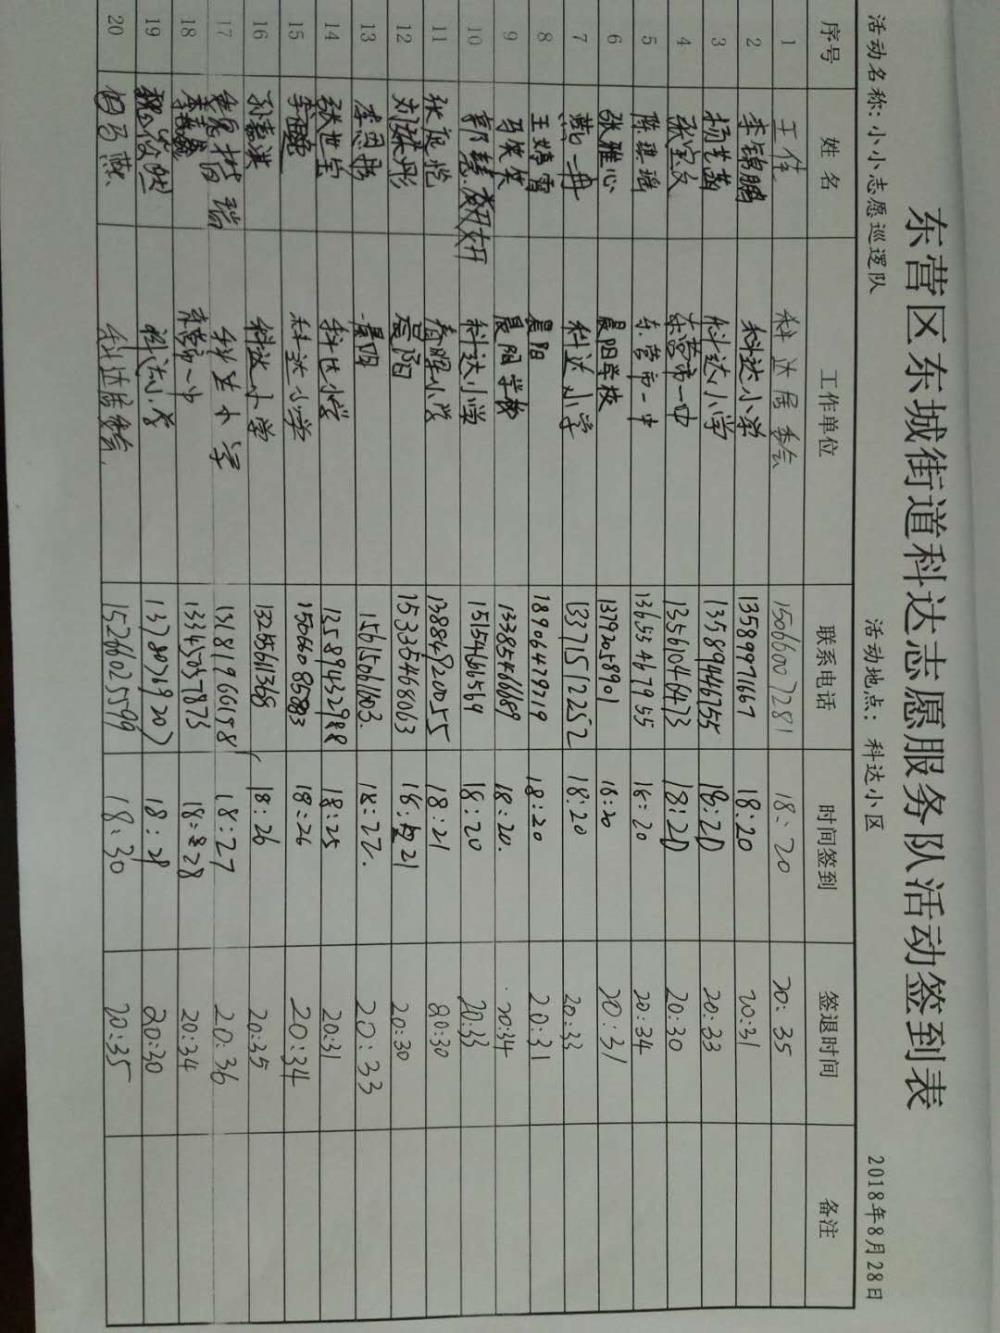 东营区东城街道科达志愿服务队活动签到表
活动名称:小小志愿巡逻队 活动地点: 科达小区 2018年8月28日
序号 姓名 工作单位 联系电话 时间签到 签退时间 备注
1 王伟 科达居委会 15066007281 18:20 20:35
2 李锦鹏 科达小学 13589971667 18:20 20:31
3 杨艺菡 科达小学 13589446755 18:20 20:33
4 张宝文 东营市一中 13561046473 18:20 20:30
5 陈琪瑶 东营市一中 13655467955 18:20 20:34
6 张雅心 晨阳学校 13792058901 18:20 20:31
7 燕冉 科达小学 13371512252 18:20 20:33
8 王婷雪 晨阳 18906479719 18:20 20:31
9 马笑笑 晨阳学校 13385466689 18:20. 20:34
10 郭慧 科达小学 15154666569 18:20 20:33
11 张庭恺 春晖小学 13884920055 18:21 20:30
12 刘 彤 晨阳 15335468063 18:21 20:30
13 李恩彤 晨阳 15615061603. 18:22. 20:33
14 张世宝 科达小学 13589432988 18:25 20:31
15 科达小学 15066085883 18:26 20:34
16 孙嘉淇 科达小学 13255611368 18:26 20:35
17 科达小学 13181966658 18:27 20:36
18 东营市一中 13345057873 18:28 20:34
19 魏 然 科达小学 13780769207 18:28 20:30
20 白乃燕 科达居委会. 15266025599 18:30 20:35